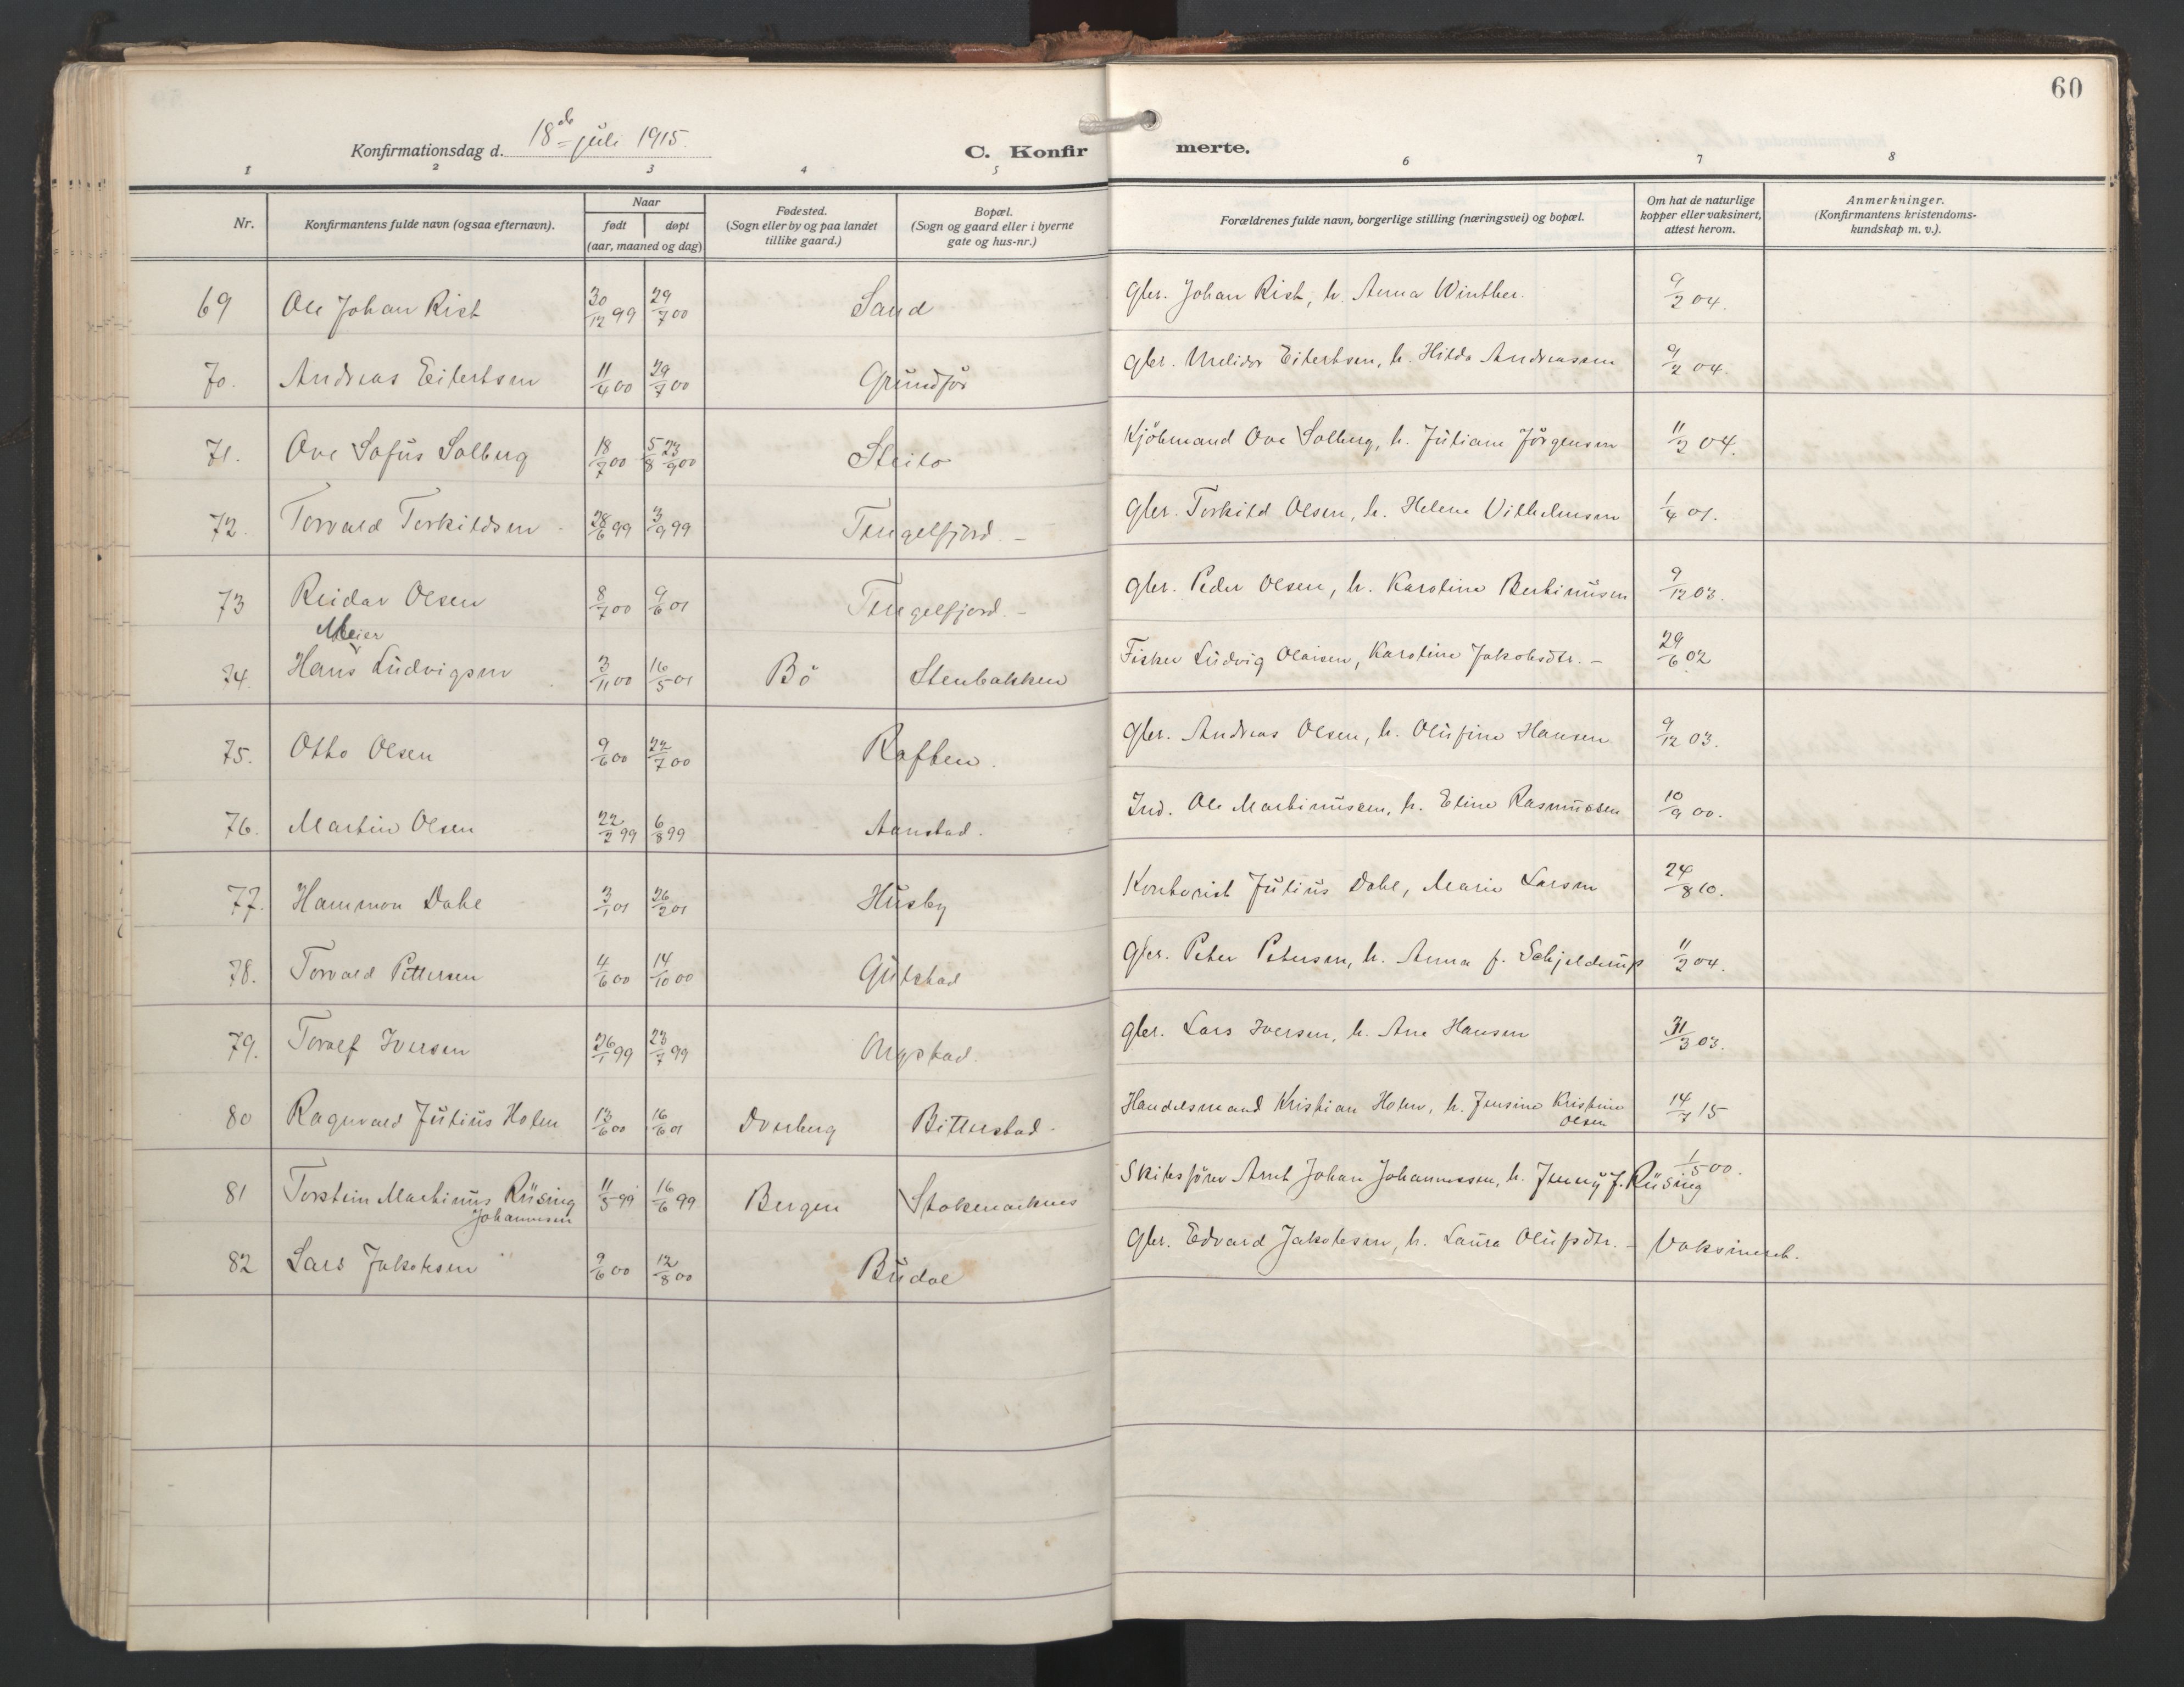 60
Konfirmationsdag d. 18de juli 1915.
C. Konfirmerte.
1 2 3 4 5 6 7 8
Nr.
Konfirmantens fulde navn (ogsaa efternavn).
Naar
født døpt
(aar, maaned og dag)
Fødested.
(Sogn eller by og paa landet
tillike gaard.)
Bopæl.
(Sogn og gaard eller i byerne
gate og hus-nr.)
Forældrenes fulde navn, borgerlige stilling (næringsvei) og bopæl.
Om hat de naturlige
kopper eller vaksinert,
attest herom.
Anmerkninger.
(Konfirmantens kristendoms-
kundskap m. v.).
69 Ole Johan Rist 30/12 99 29/7 00 Sand Gbr. Johan Rist, h. Anna Winther. 9/2 04.
70. Andreas Eilertsen 11/4 00 29/7 00 Grundför Gbr. Eilertsen, h. Hilda Andreassen 9/2 04.
71. Ove Sofus Solberg 18/7 00 5/8 23/9 00 Steilo Kjöbmand Ove Solberg, h. Juliane Jörgensen 11/2 04.
72. Torvald Torkildsen 28/6 99 3/9 99 Tengelfjord. - Gbr. Torkild Olsen, h. Helene Vilhelmsen 1/4 01.
73 Reidar Olsen 8/7 00 9/6 01 Tengelfjord. - Gbr. Peder Olsen, h. Karoline Bertinusen 9/12 03.
Meier
74. Hans Ludvigsen 3/11 00 16/5 01 Bö Stenbakken Fisker Ludvig Olaisen, Karoline Jakobsdtr. - 29/6 02
75. Otto Olsen 9/6 00 22/7 00 Raften. Gbr. Andreas Olsen, h. Olufine Hansen 9/12 03.
76. Martin Olsen 22/2 99 6/8 99 Aanstad. Ind. Ole Martinussen, h. Eline Rasmussen 10/9 00.
77. Hammon Dahl 3/1 01 26/2 01 Husby Kontorist Julius Dahl, Marie Larsen 24/8 10.
78. Torvald Pettersen 4/6 00 14/10 00 Gulstad Gbr. Peter Petersen, h. Anna f. Schjelderup 11/2 04.
79. Toralf Iversen 26/1 99 23/7 99 Ongstad. Gbr. Lars Iversen, h. Ane Hansen 31/3 03.
80 Ragnvald Julius Holm 13/6 00 16/6 01 Dverberg Bitterstad. Handelsmand Kristian Holm, h. Jensine Kristine 14/7 15
Olsen
81 Torstein Martinus Rüsing 11/5 99 16/6 99 Bergen Stokmarknes Skibsförer Arnt Johan Johannessen, h. Jenny f. Rüsing 1/5 00.
Johannesen
82 Lars Jakobsen 9/6 00 12/8 00 Budal Gbr. Edvard Jakobsen, h. Laura Olufsdtr. - Vaksinert.